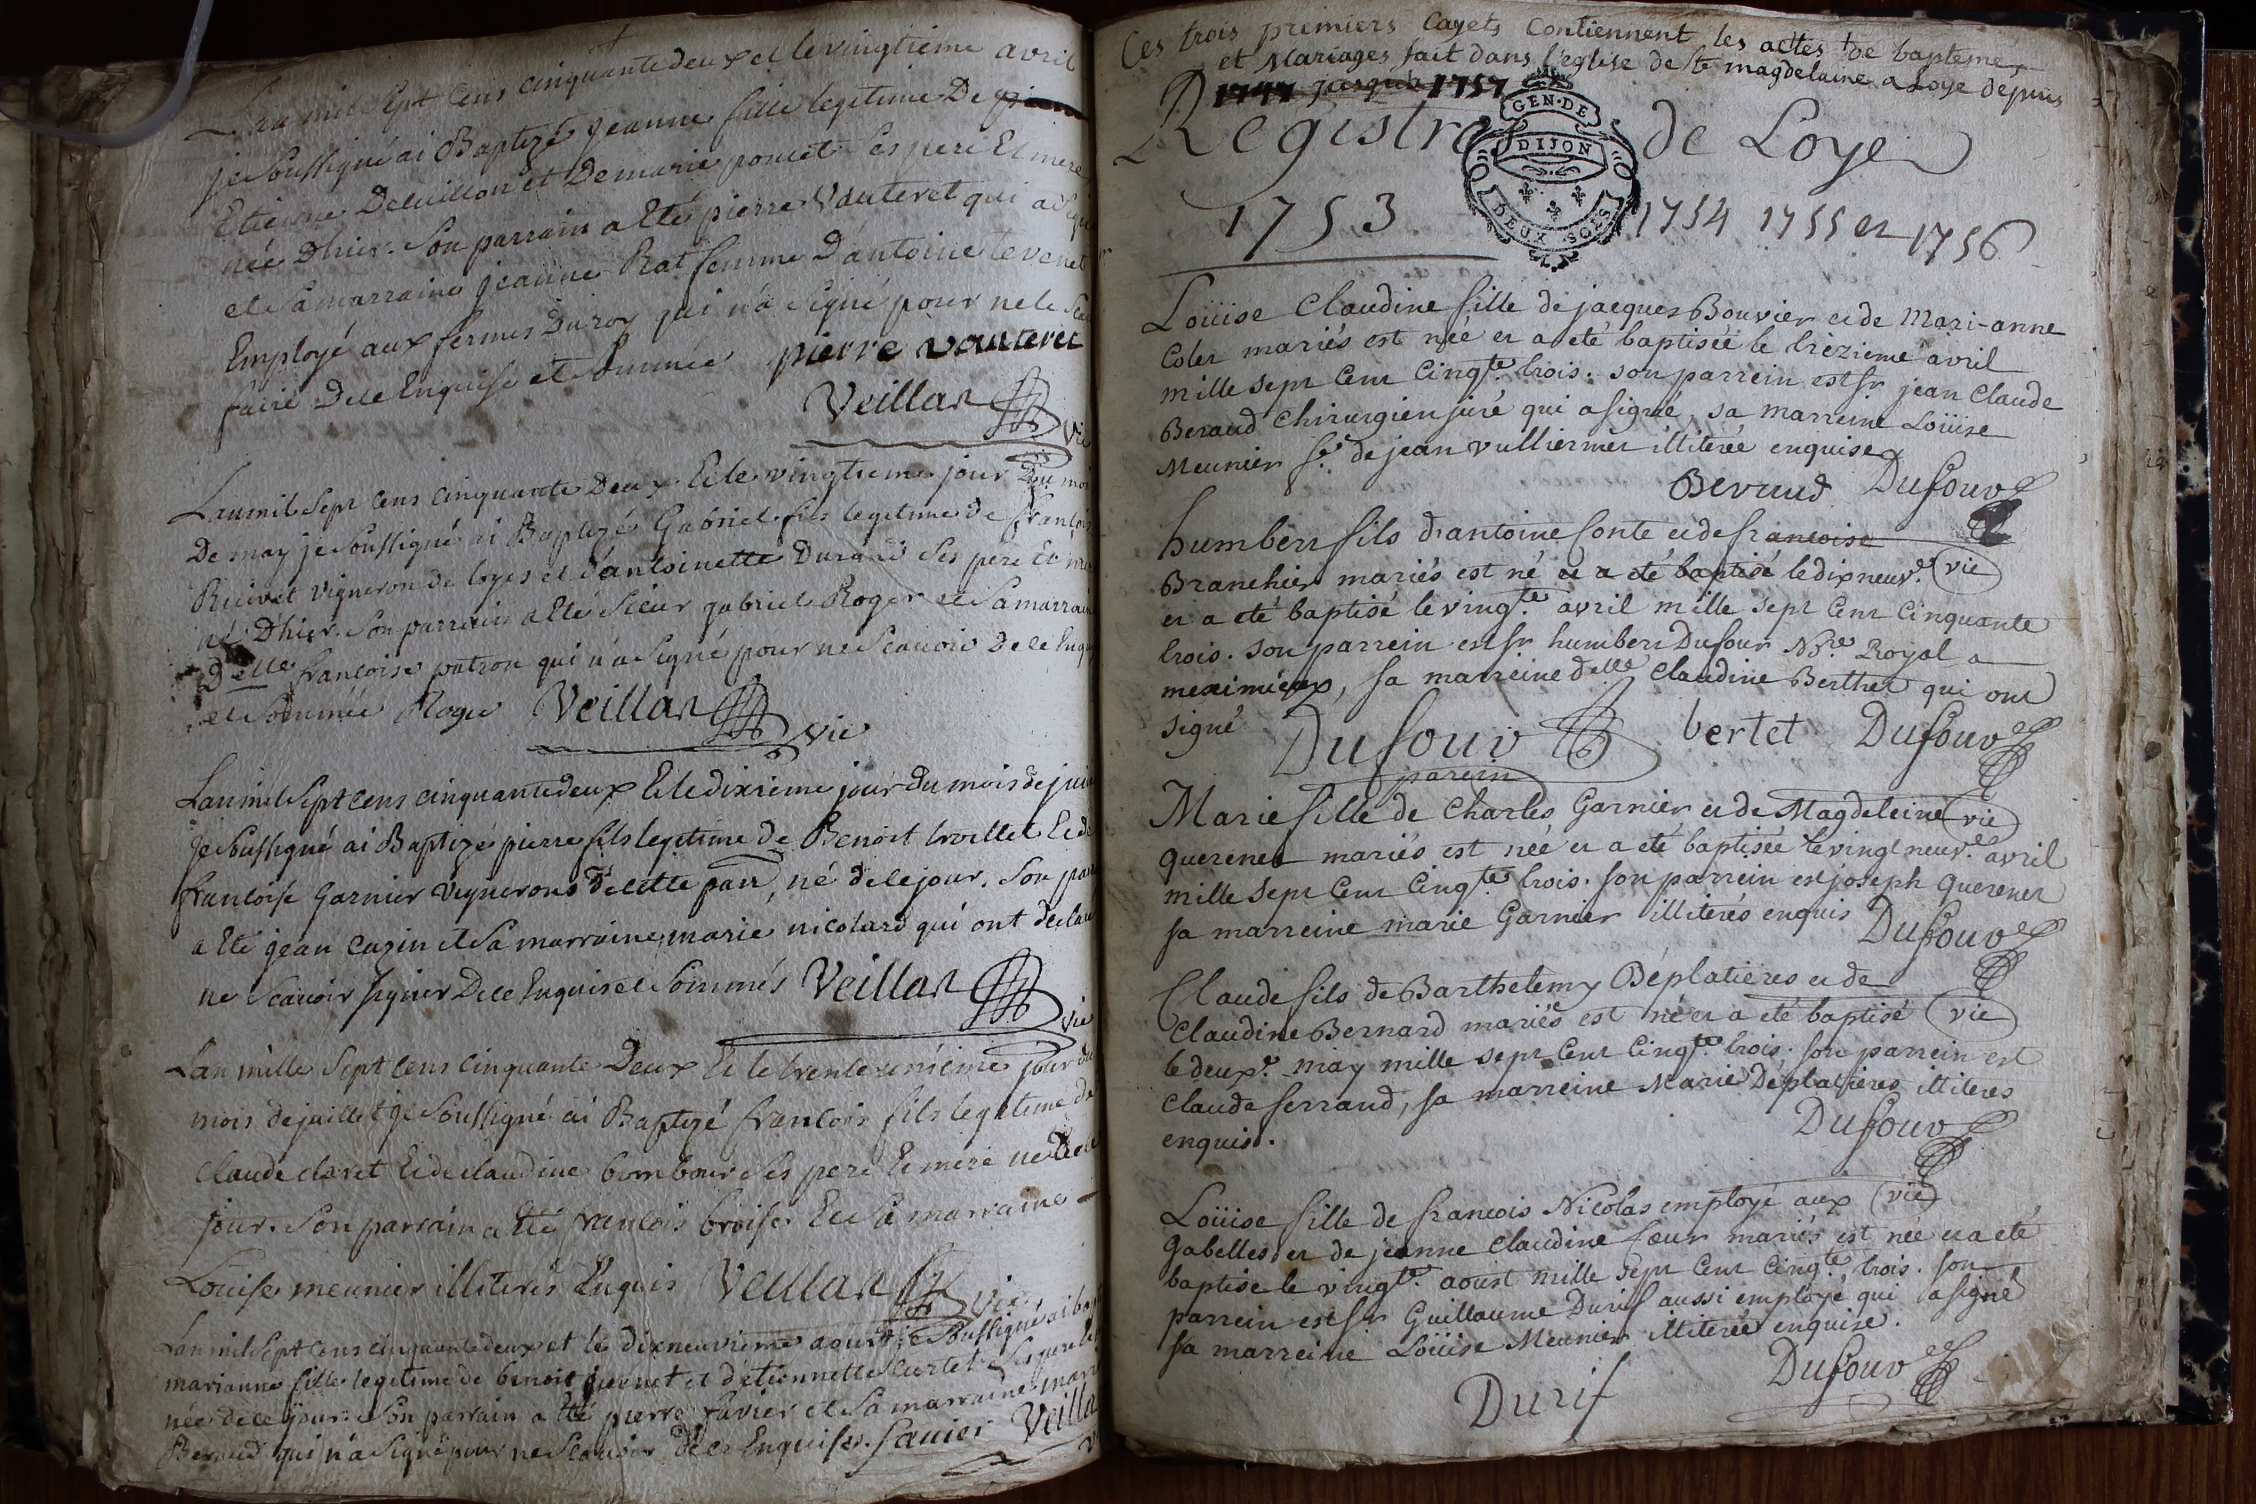 Lan mil sept cens cinquante deux et le vingtieme avril
je soussigné ai Baptizé jeanne fille legitime De
Etienne Deluillon et Demarie poncet Ses pere Et mere
née Dhier. Son parrain a Eté pierre Vauteret qui a signé
et Samarraine jeanne Rat femme Dantoine tevenet
Employé aux fermes Duroy qui n'a Signé pour ne le
faire Dece Enquise et Sommée pierre vauteret
Veillar
vic
Lan mil Sept Cens cinquante Deux Et le vingtieme jour Du mois
De may je soussigné ai Baptizé Gabriel fils legitime de françois
vigneron de loyes et d'antoinette Durand Ses pere Et mere
né Dhier. Son parrain a Eté Sieur gabriel Roger et Samarraine
Delle francoise patron qui n'a Signé pour ne Scavoir De ce Enquise
et Sommée Roger Veillar
vic
Lan mil Sept cens cinquante deux Et le dixieme jour Du mois de juin
je soussigné ai Baptizé pierre fils legitime de Benoit trollet Et de
francoise Garnier vignerons De cette parr, né De ce jour. Son parrain
a Eté jean cazin et Sa marraine marie nicolard qui ont declaré
ne Scavoir signer De ce Enquis et Sommés Veillar
vic
Lan mille Sept cens cinquante Deux Et le trente unieme jour du
mois de juillet je Soussigné ai Baptizé francois fils legitime de
Claude claret Et de claudine bombour Ses pere Et mere né De ce
jour. Son parrain a Eté francois broise Et Sa marraine
Louise meunier illiterés Enquis Veillar
vic
Lan mil Sept cens cinquante deux et le dixneuvieme aoust je Soussigné ai baptizé
marianne fille legitime de benoit juenet et d'etiennette Curtet Ses pere Et
née de ce jour. Son parrain a Eté pierre favier et Sa marraine marie
Beraud qui n'a Signé pour ne Scavoir De ce Enquise. favier Veillar
Ces trois premiers Cayets Contiennent les actes de bapteme,
et Mariages fait dans l'église de Ste magdelaine a Loye depuis
1747 jusqu'a 1757
Registre de Loye
GEN·DE
DIJON
DEUX SOLS
1753 1754 1755 et 1756
Loüise Claudine fille de jacques Bouvier et de Mari-anne
Colet mariés est née et a eté baptisée le trezieme avril
mille sept Cent Cingte trois. son parrein est sr jean Claude
Beraud Chirurgien juré qui a signé, sa marreine Loüise
Meunier fe de jean vulliermet illiterée enquise
Beraud Dufour
humbert fils d'antoine fonte et de francoise
Branchier mariés est né et a eté baptisé le dixneuve vic
et a eté baptisé le vingte avril mille sept Cent Cinquante
trois. son parrein est sr humbert Dufour Nre Royal a
meximieux, sa marreine delle Claudine Berthet qui ont
signé Dufour bertet Dufour
parein
Marie fille de Charles Garnier et de Magdeleine vic
querenet mariés est née et a eté baptisée le vingt neuve avril
mille sept Cent Cingte trois. son parrein est joseph querenet
sa marreine marie Garnier illiterés enquis Dufour
Claude fils de Barthelemy Déplatieres et de
Claudine Bernard mariés est né et a eté baptisé vic
le deuxe may mille sept Cent Cingte trois. son parrein est
Claude ferrand, sa marreine Marie Déplatieres illiteres
enquis. Dufour
Loüise fille de francois Nicolas employé aux vic
Gabelles, et de jeanne Claudine fœur mariés est née et a eté
baptise le vingte aoust mille sept Cent Cingte trois. son
parrein est sr Guillaume Durif aussi employé, qui a signé
sa marreine Loüise Meunier illiterée enquise.
Durif Dufour